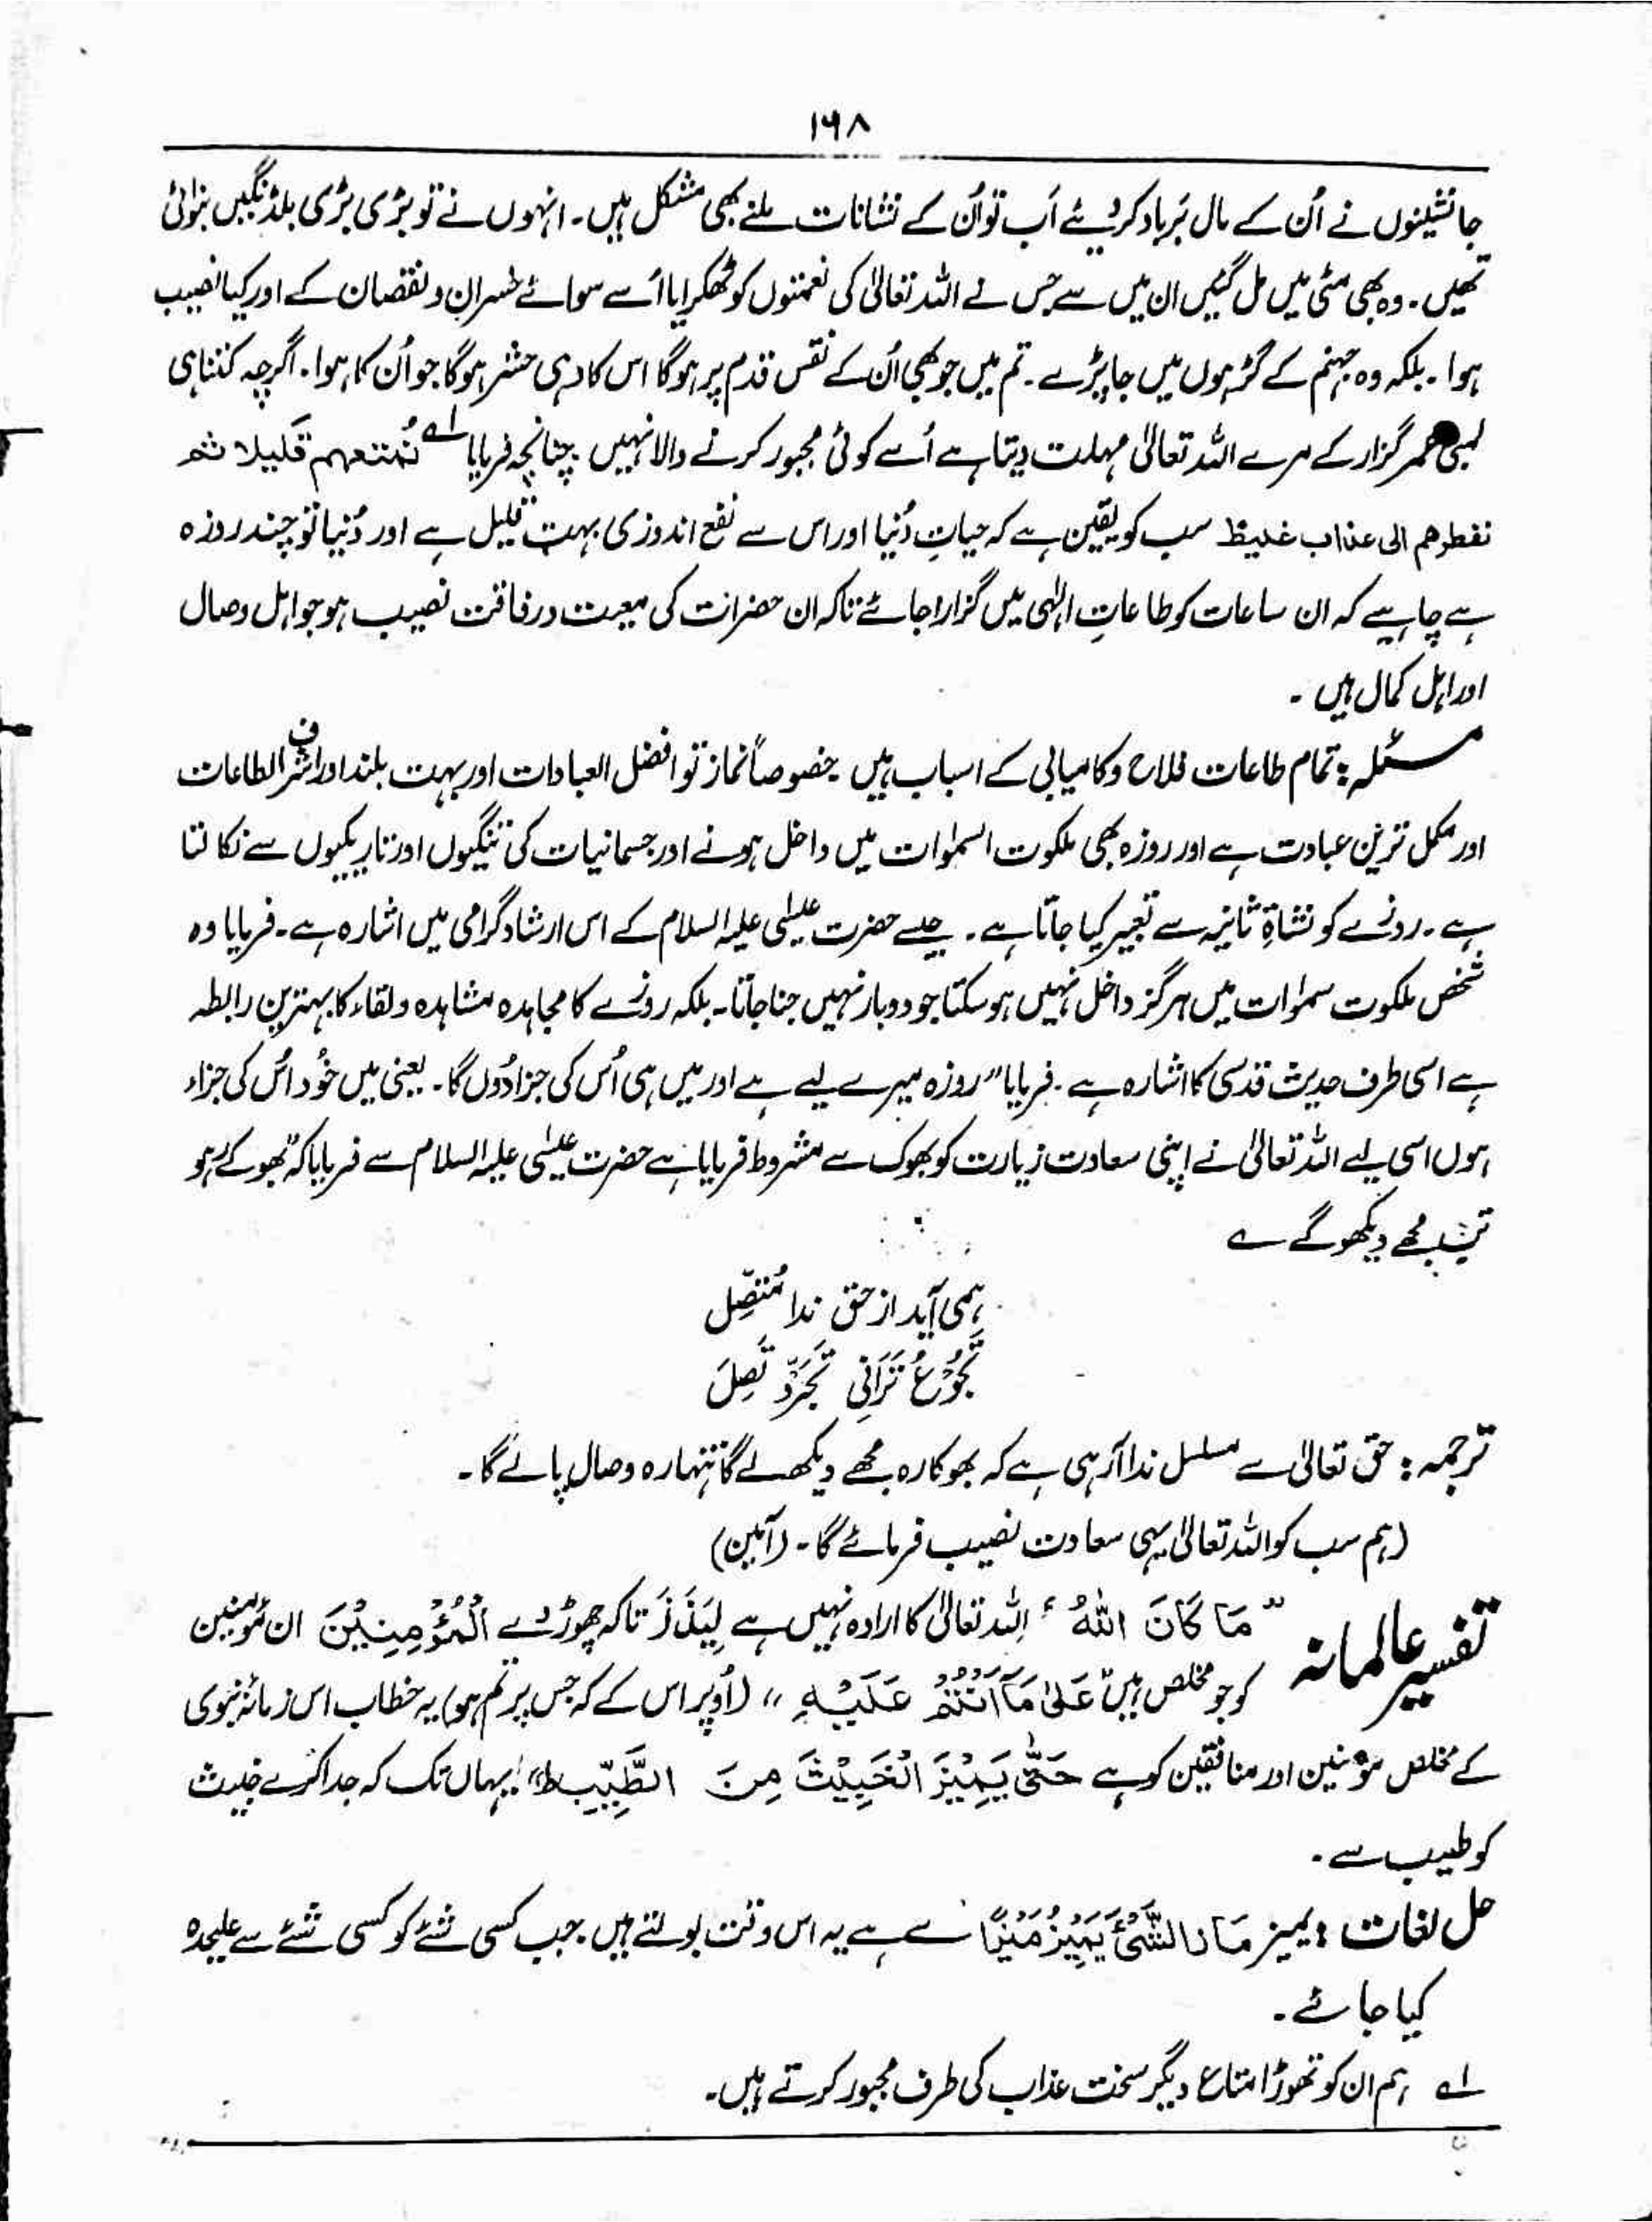 ۱۶۸
جانشینوں نے اُن کے مال بَرباد کر دیئے اَب تو اُن کے نشانات ملنے بھی مشکل ہیں۔ انہوں نے تو بڑی بڑی بلڈنگیں بنوائی
تھیں۔ وہ بھی مٹی میں مل گئیں ان میں سے جس نے اللہ تعالیٰ کی نعمتوں کو ٹھکرایا اُسے سوائے خسران و نقصان کے اور کیا نصیب
ہوا۔ بلکہ وہ جہنم کے گڑہوں میں جا پڑے۔ تم میں جو بھی اُن کے نقس قدم پر ہوگا اس کا وہی حشر ہوگا جو اُن کا ہوا۔ اگرچہ کتنا ہی
لمبی عمر گزار کے مرے اللہ تعالیٰ مہلت دیتا ہے اُسے کوئی مجبور کرنے والا نہیں چنانچہ فرمایا لے نُمتعہم قلیلا ثم
نفطرھم الی عذاب غلیظ سب کو یقین ہے کہ حیاتِ دُنیا اور اس سے نفع اندوزی بہت قلیل ہے اور دُنیا تو چند روزہ
ہے چاہیے کہ ان ساعات کو طاعاتِ الٰہی میں گزارا جائے تاکہ ان حضرات کی معیت و رفاقت نصیب ہو جو اہل وصال
اور اہل کمال ہیں۔
مسئلہ: تمام طاعات فلاح و کامیابی کے اسباب ہیں خصوصاً نماز تو افضل العبادات اور بہت بلند اور اشرف الطاعات
اور مکمل ترین عبادت ہے اور روزہ بھی ملکوت السمٰوات میں داخل ہونے اور جسمانیات کی تنگیوں اور تاریکیوں سے نکالتا
ہے۔ روزے کو نشاۃِ ثانیہ سے تعبیر کیا جاتا ہے۔ جیسے حضرت عیسٰی علیہ السلام کے اس ارشاد گرامی میں اشارہ ہے۔ فرمایا وہ
شخص ملکوت سمٰوات میں ہرگز داخل نہیں ہو سکتا جو دوبار نہیں جنا جاتا۔ بلکہ روزے کا مجاہدہ مشاہدہ و لقاء کا بہترین رابطہ
ہے اسی طرف حدیث قدسی کا اشارہ ہے۔ فرمایا "روزہ میرے لیے ہے اور میں ہی اُس کی جزا دُوں گا۔ یعنی میں خُود اُس کی جزاء
ہوں اسی لیے اللہ تعالیٰ نے اپنی سعادت زیارت کو بھوک سے مشروط فرمایا ہے حضرت عیسٰی علیہ السلام سے فرمایا کہ بھوکے رہو
تب مجھے دیکھو گے ے
ہمی آید از حق ندا مُتصِّل
تَجُوْعُ تَرَانِی تَجَرَّدْ تَصِلَ
ترجمہ: حق تعالیٰ سے مسلسل ندا آ رہی ہے کہ بھوکا رہ مجھے دیکھ لے گا تنہا رہ وصال پالے گا۔
(ہم سب کو اللہ تعالیٰ یہی سعادت نصیب فرمائے گا۔ (آمین)
تفسیر عالمانہ "مَا کَانَ اللّٰہُ" اللہ تعالیٰ کا ارادہ نہیں ہے لِیَذَرَ تاکہ چھوڑ دے الْمُؤْمِنِیْنَ ان مؤمنین
کو جو مخلص ہیں "عَلیٰ مَآ اَنْتُمْ عَلَیْہِ" (اُوپر اس کے کہ جس پر تم ہو) یہ خطاب اس زمانۂ نبوی
کے مخلص مؤمنین اور منافقین کو ہے حَتّٰی یَمِیْزَ الْخَبِیْثَ مِنَ الطَّیِّبِ ط" یہاں تک کہ جدا کرے خبیث
کو طیب سے۔
حل لغات: یمیز مَازَ الشَّیْئَ یَمِیْزُ مَیْزًا سے ہے یہ اس وقت بولتے ہیں جب کسی شئے کو کسی شئے سے علیحدہ
کیا جائے۔
لے ہم ان کو تھوڑا متاع دیگر سخت عذاب کی طرف مجبور کرتے ہیں۔